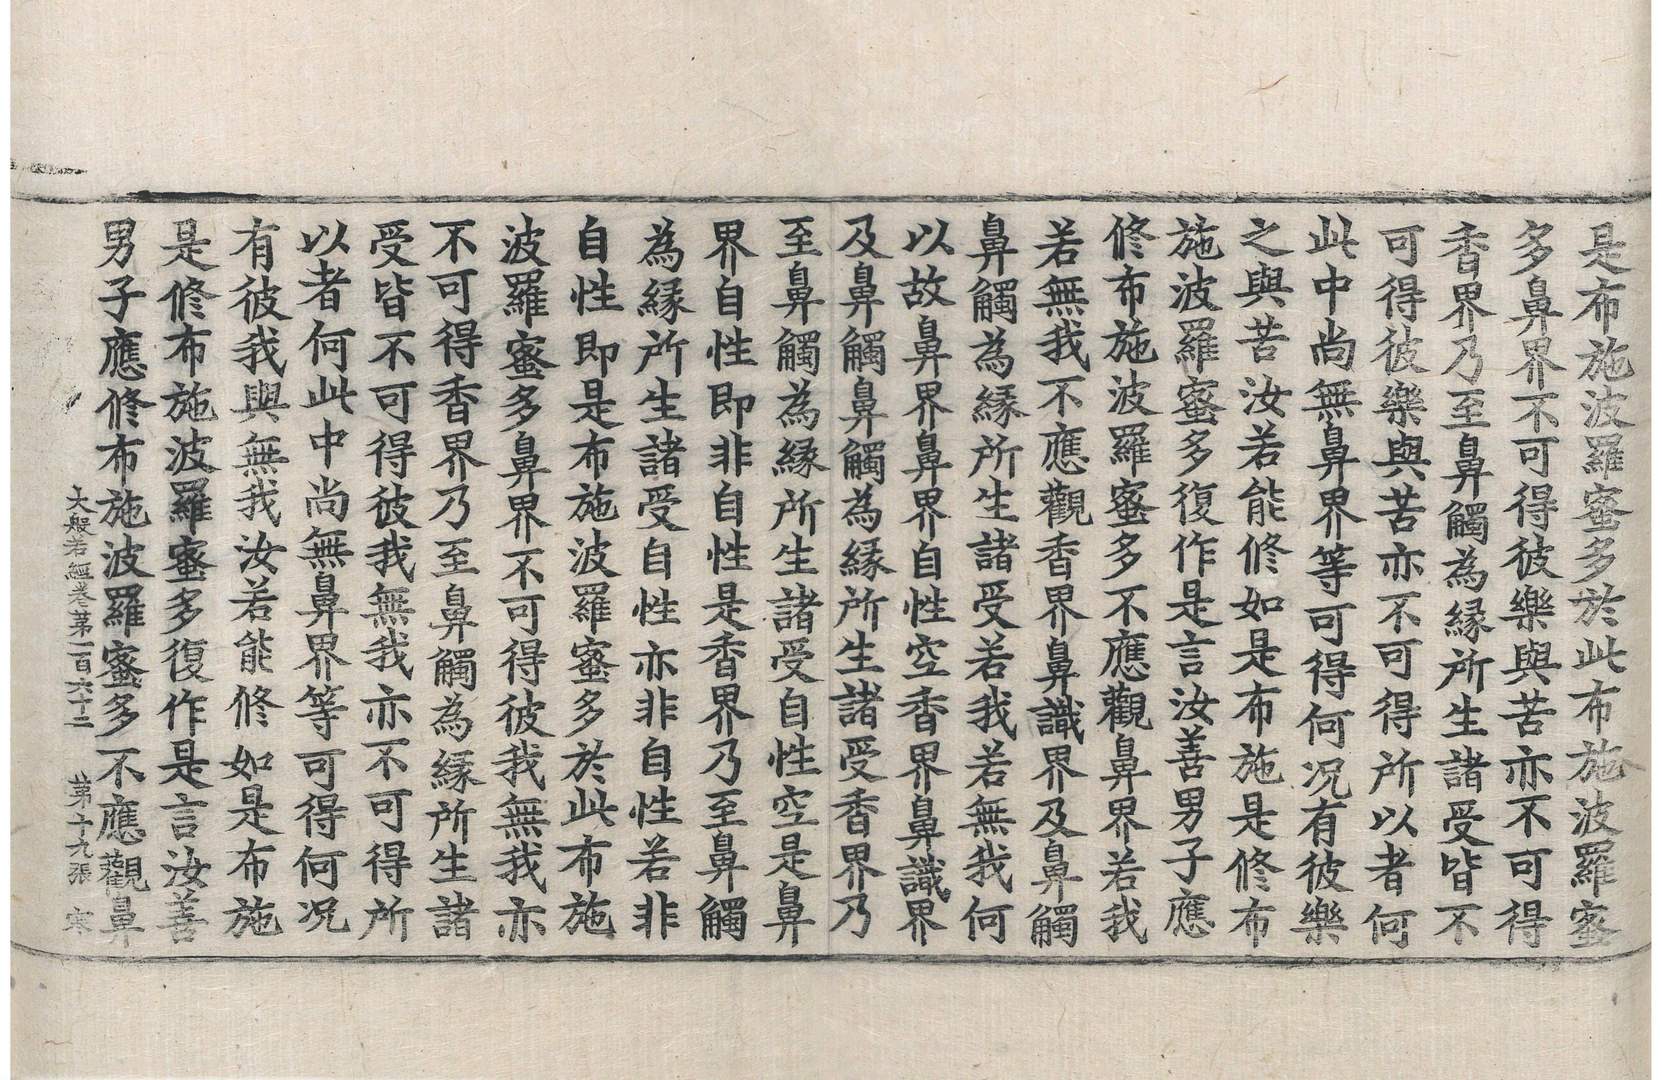 是布施波羅蜜多於此布施波羅蜜
多鼻界不可得彼樂與苦亦不可得
香界乃至鼻觸為緣所生諸受皆不
可得彼樂與苦亦不可得所以者何
此中尚無鼻界等可得何況有彼樂
之與苦汝若能修如是布施是修布
施波羅蜜多復作是言汝善男子應
修布施波羅蜜多不應觀鼻界若我
若無我不應觀香界鼻識界及鼻觸
鼻觸為緣所生諸受若我若無我何
以故鼻界鼻界自性空香界鼻識界
及鼻觸鼻觸為緣所生諸受香界乃
至鼻觸為緣所生諸受自性空是鼻
界自性即非自性是香界乃至鼻觸
為緣所生諸受自性亦非自性若非
自性即是布施波羅蜜多於此布施
波羅蜜多鼻界不可得彼我無我亦
不可得香界乃至鼻觸為緣所生諸
受皆不可得彼我無我亦不可得所
以者何此中尚無鼻界等可得何况
有彼我與無我汝若能修如是布施
是修布施波羅蜜多復作是言汝善
男子應修布施波羅蜜多不應觀鼻
大般若經卷第一百六十二 第十九張 寒